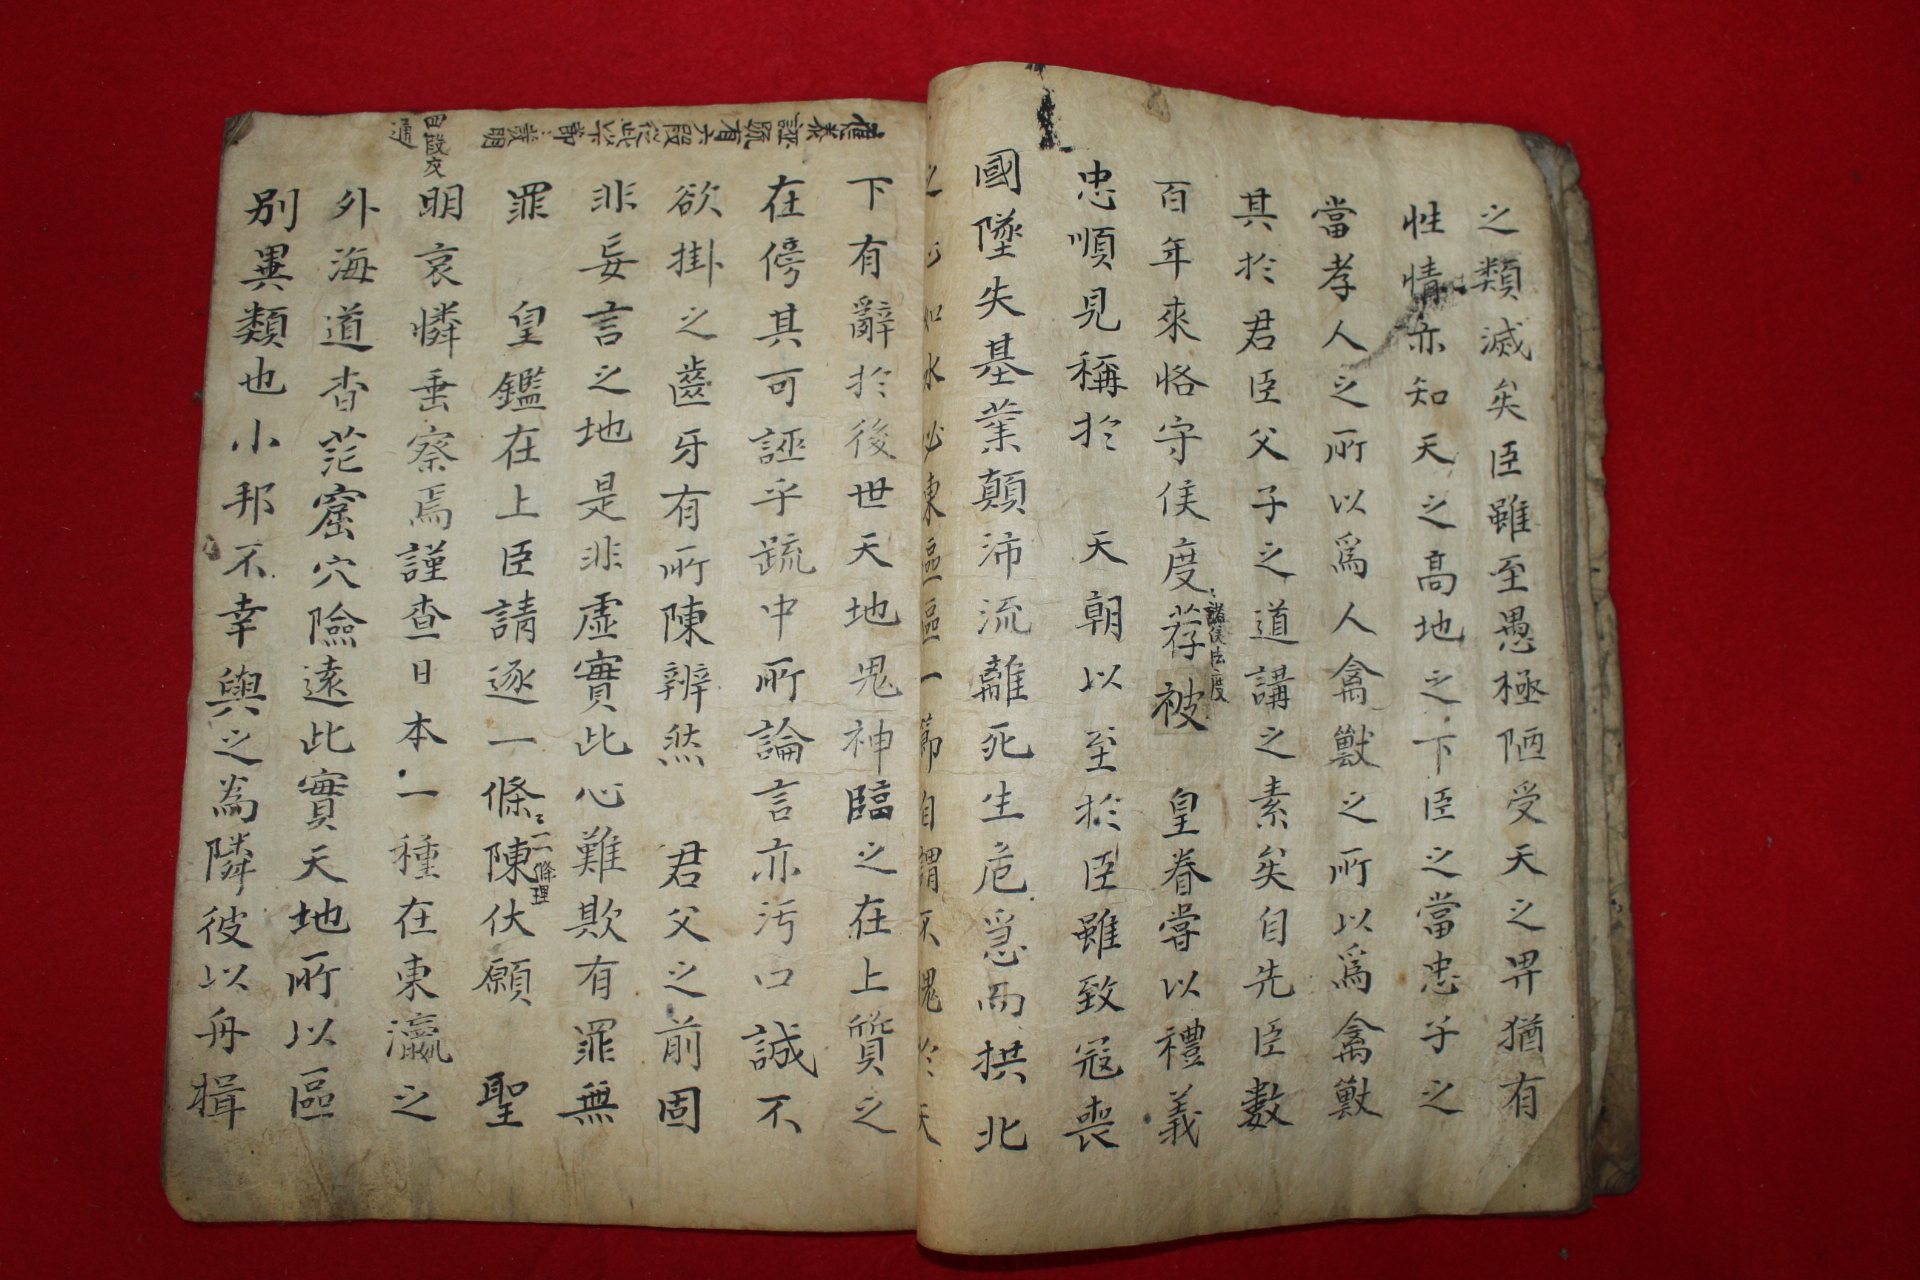 之類滅矣臣雖至愚極陋受天之畀猶有
性情亦知天之高地之下臣之當忠子之
當孝人之所以爲人禽獸之所以爲禽獸
其於君臣父子之道講之素矣自先臣數
百年來恪守侯度荐被 皇眷嘗以禮義
諸侯法度
忠順見稱於 天朝以至於臣雖致寇喪
國墜失基業顛沛流離死生危急而拱北
之心如水必東區區一節自謂不愧於天
下有辭於後世天地鬼神臨之在上質之
在傍其可誣乎疏中所論言亦污口誠不
欲掛之齒牙有所陳辨然 君父之前固
非妄言之地是非虛實此心難欺有罪無
罪 皇鑑在上臣請逐一條陳伏願 聖
一一條理
明哀憐垂察焉謹查日本一種在東瀛之
外海道杳茫窟穴險遠此實天地所以區
別異類也小邦不幸與之爲隣彼以舟楫
誣疏有六段從此半節發明
四段交
通